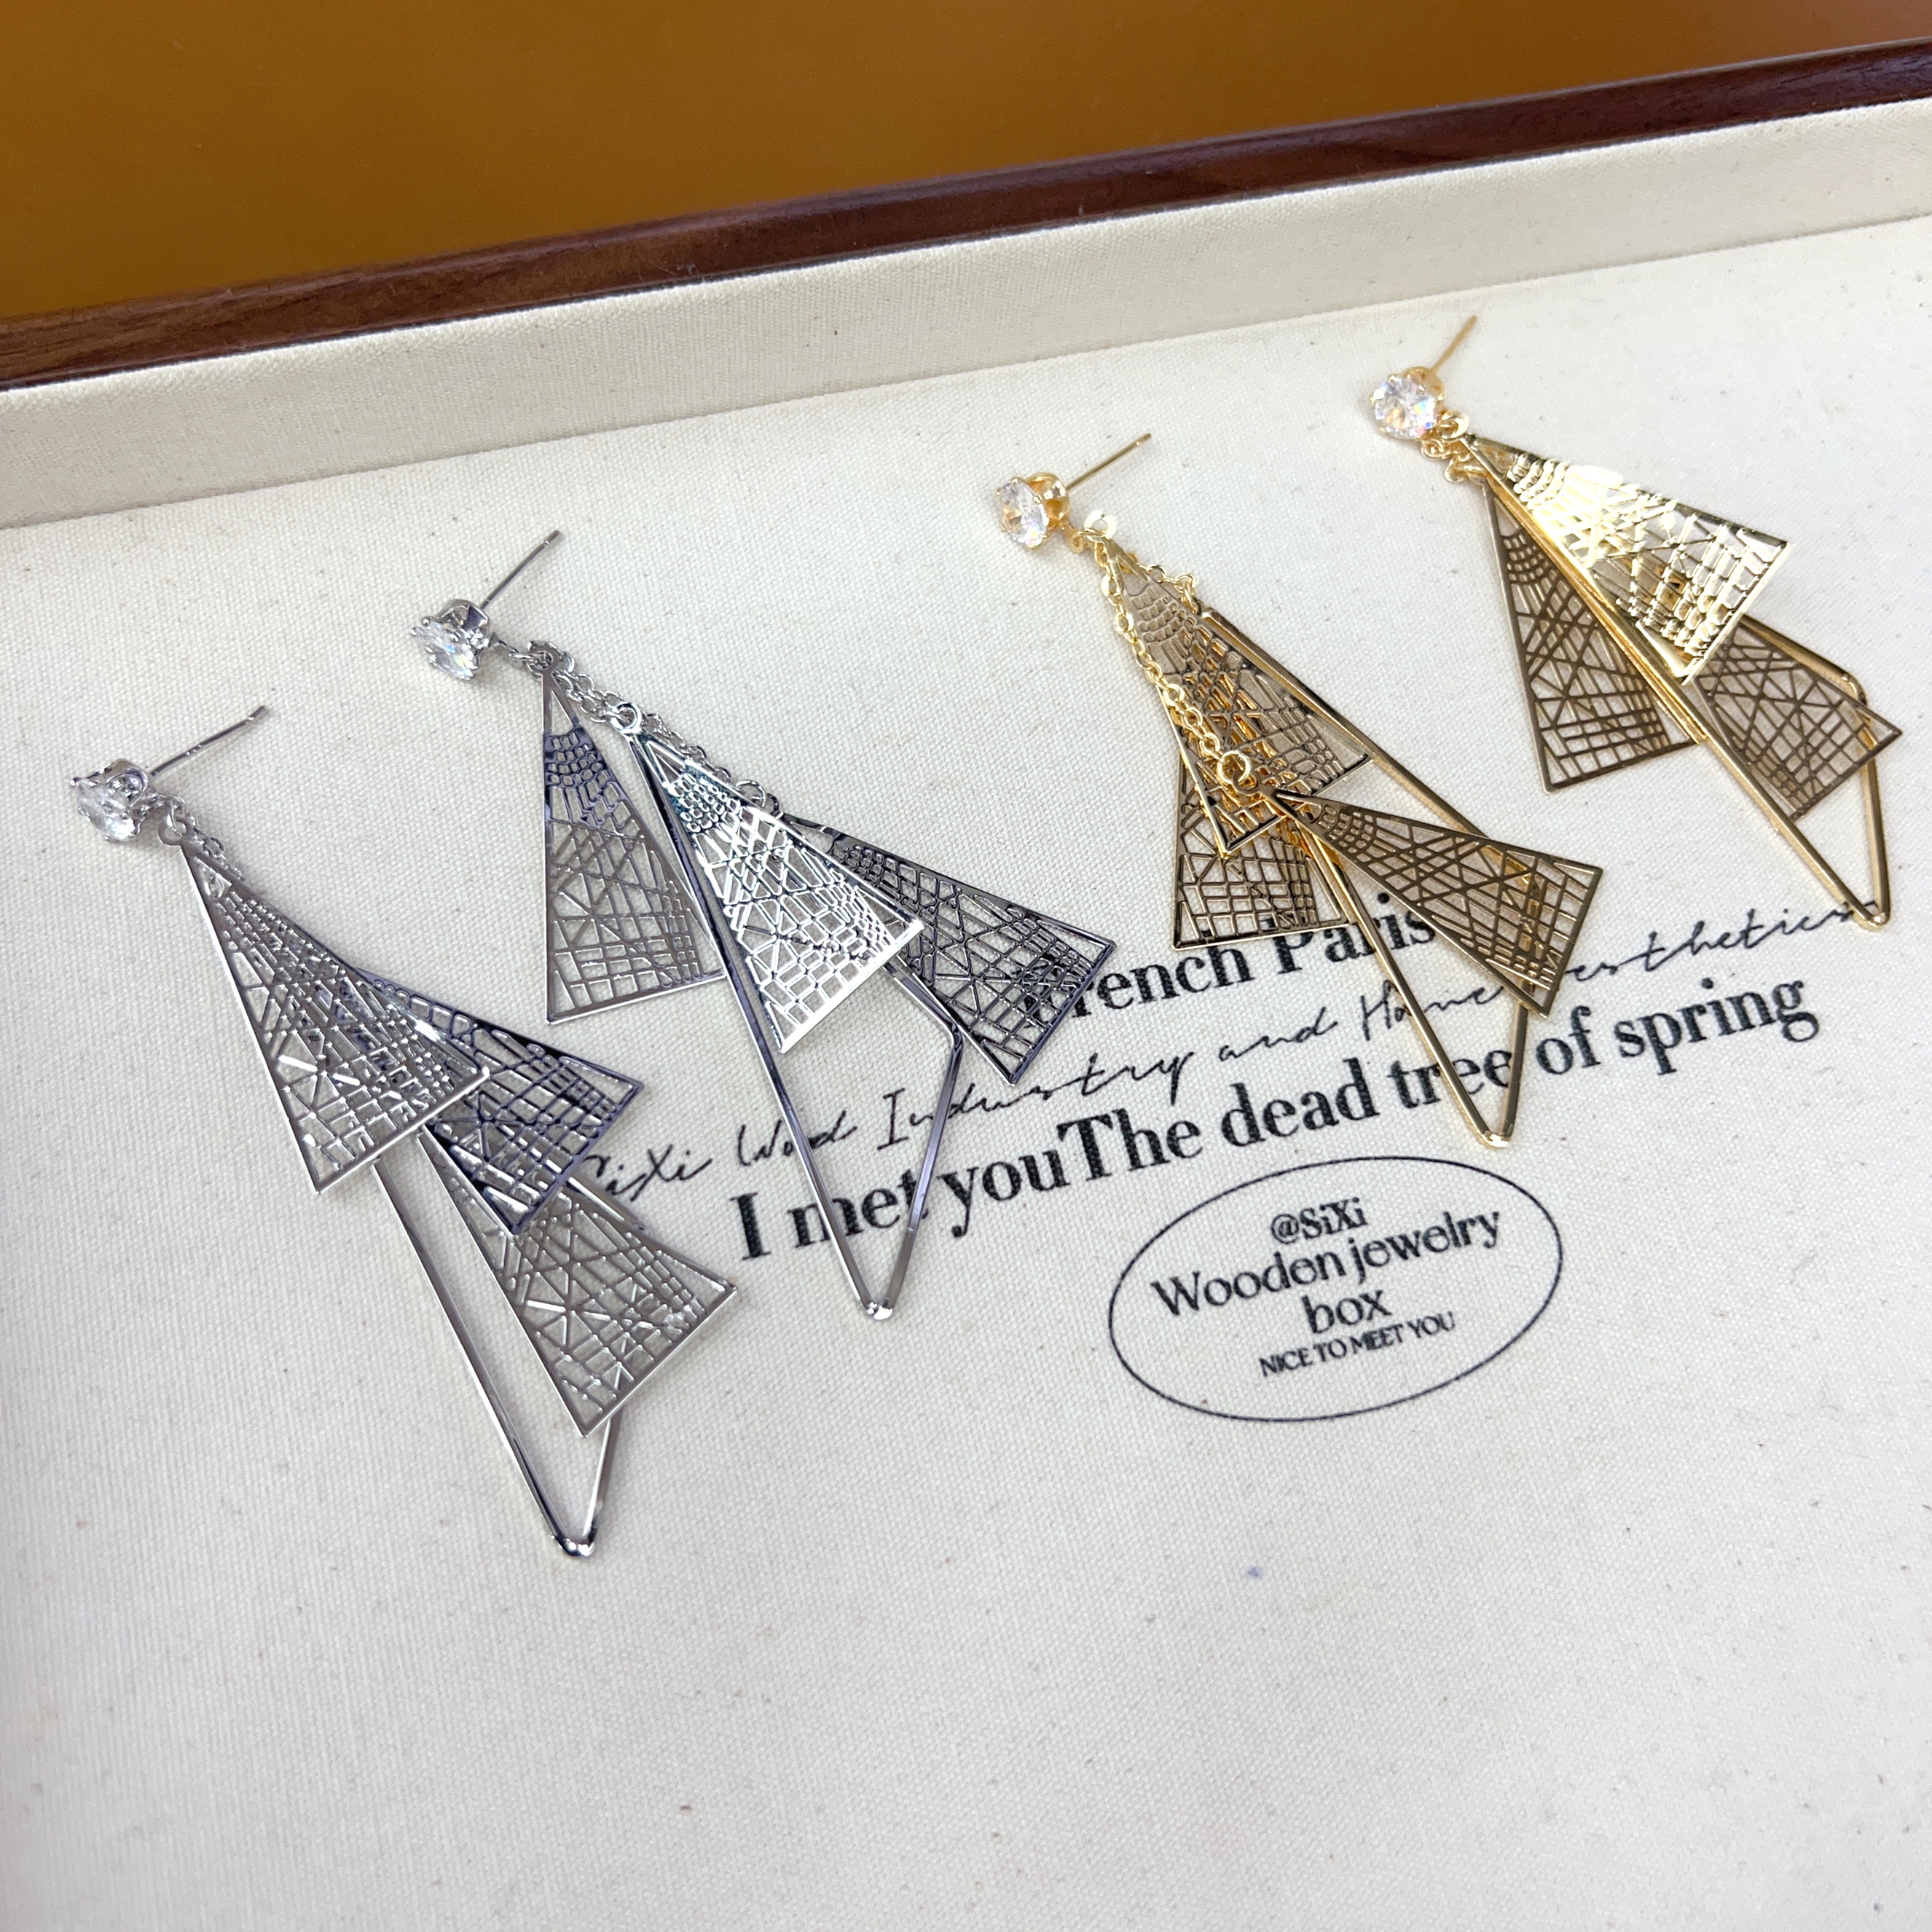 Paris
SiXi Wood Industry and Home aesthetics
I met youThe dead tree of spring
@SiXi
Wooden jewelry
box
NICE TO MEET YOU